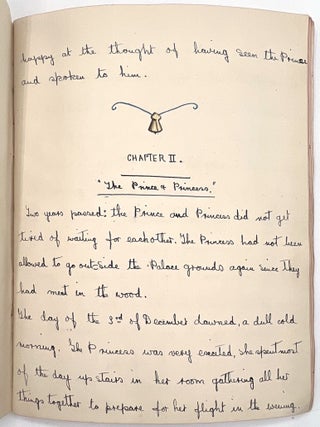 happy at the thought of having seen the Prince
and spoken to him.
CHAPTER II.
"The Prince & Princess."
Two years passed: the Prince and Princess did not get
tired of waiting for each other. The Princess had not been
allowed to go out-side the Palace grounds again since they
had meet in the wood.
The day of the 3rd of December dawned, a dull cold
morning. The Princess was very excited, she spent most
of the day up stairs in her room gathering all her
things together to prepare for her flight in the evening.